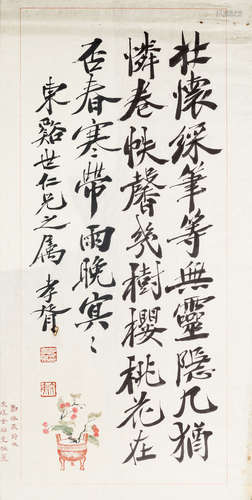 壮懷綵筆等無靈隱几猶
憐卷帙馨幾樹櫻桃花在
否春寒帶雨晚冥〻
東谿世仁兄之属 孝胥